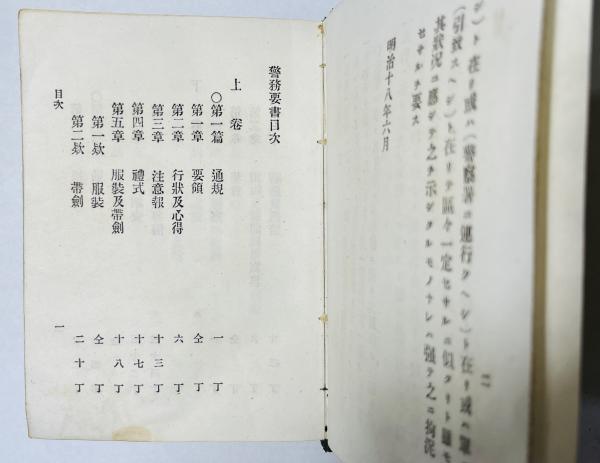 二
シ)ト在リ或ハ(警察署ニ連行クヘシ)ト在リ或ハ
(引致スヘシ)ト在リテ區々一定セサルニ似タリト雖モ
其狀況ニ應シテ之ヲ示シタルモノナレハ强テ之ニ拘泥
セサルヲ要ス
明治十八年六月
警務要書目次
上卷
〇第一篇 通規 一丁
第一章 要領 仝丁
第二章 行狀及心得 六丁
第三章 注意報 十三丁
第四章 禮式 十七丁
第五章 服裝及帶劍 十八丁
第一欵 服裝 仝丁
第二欵 帶劍 二十丁
目次 一